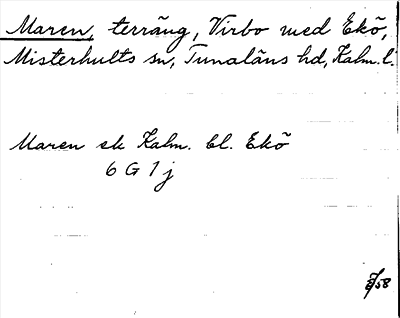 Maren, terräng, Virbo med Ekö,
Misterhults sn, Tunaläns hd, Kalm. l.
Maren sk Kalm. bl. Ekö
6 G 1 j